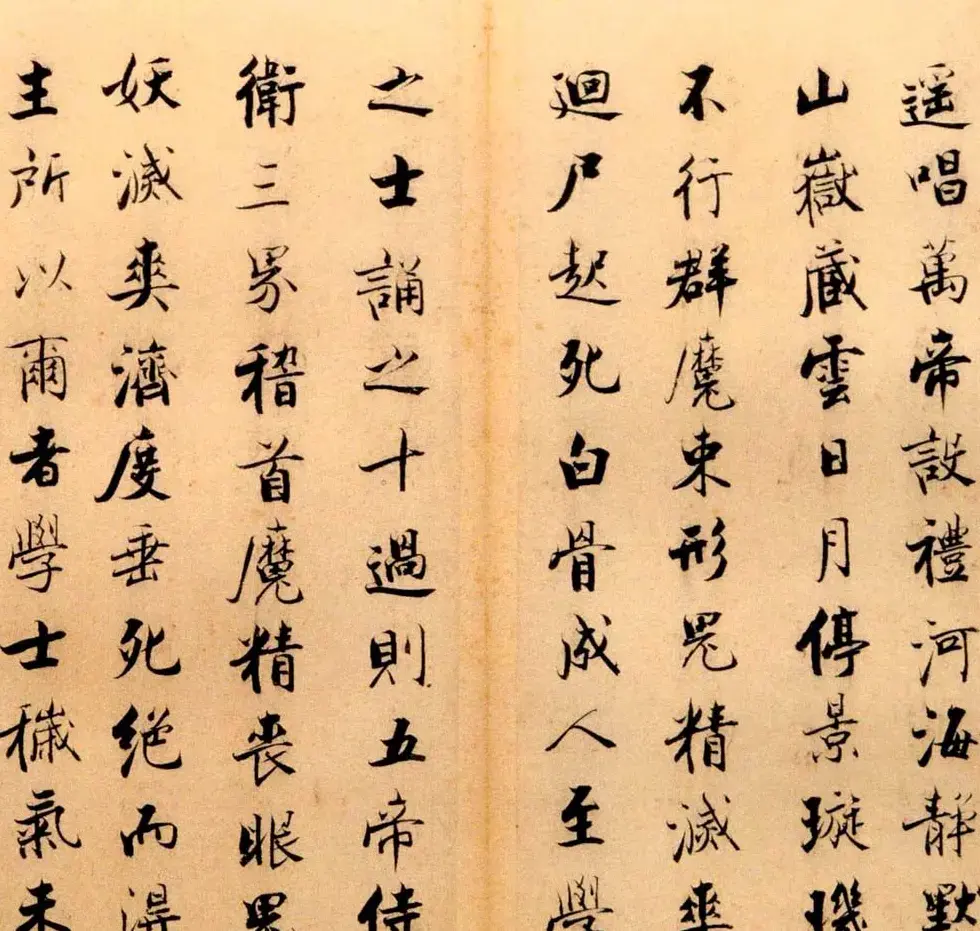 遥唱萬帝設禮河海静默
山嶽藏雲日月停景璇璣
不行群魔束形鬼精滅爽
迴尸起死白骨成人至學
之士誦之十過則五帝侍
衛三界稽首魔精喪眼鬼
妖滅爽濟度垂死絶而得
主所以爾者學士穢氣未